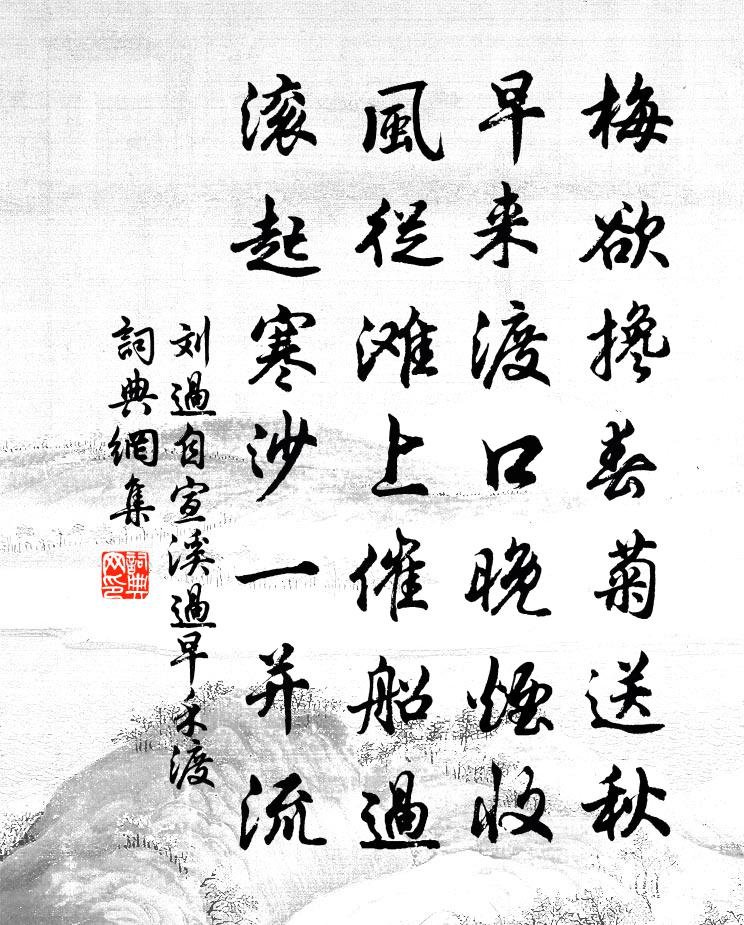 梅欲攙春菊送秋
早来渡口晚煙收
風從滩上催船過
滚起寒沙一并流
刘過自宣溪過早禾渡
詞典網集
詞典网印